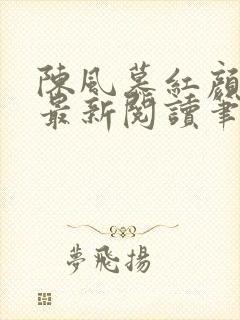 陳風慕紅顏
最新閱讀筆
夢飛揚